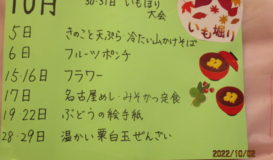 10月
30·31日 いもほり
大会
いも堀り
5日 きのこと天ぷら 冷たい山かけそば
6日 フルーツポンチ
15·16日 フラワー
17日 名古屋めし・みそかつ定食
19·22日 ぶどうの絵手紙
28·29日 温かい栗白玉ぜんざい
2022/10/02